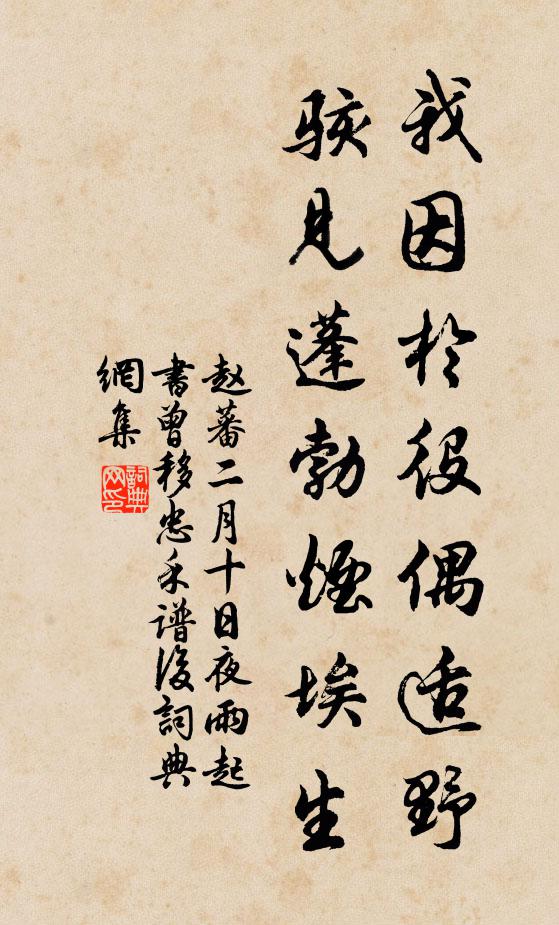 我因於役偶适野
駭見蓬勃煙埃生
赵蕃二月十日夜雨起
書曾移忠禾谱後詞典
網集
詞典網印